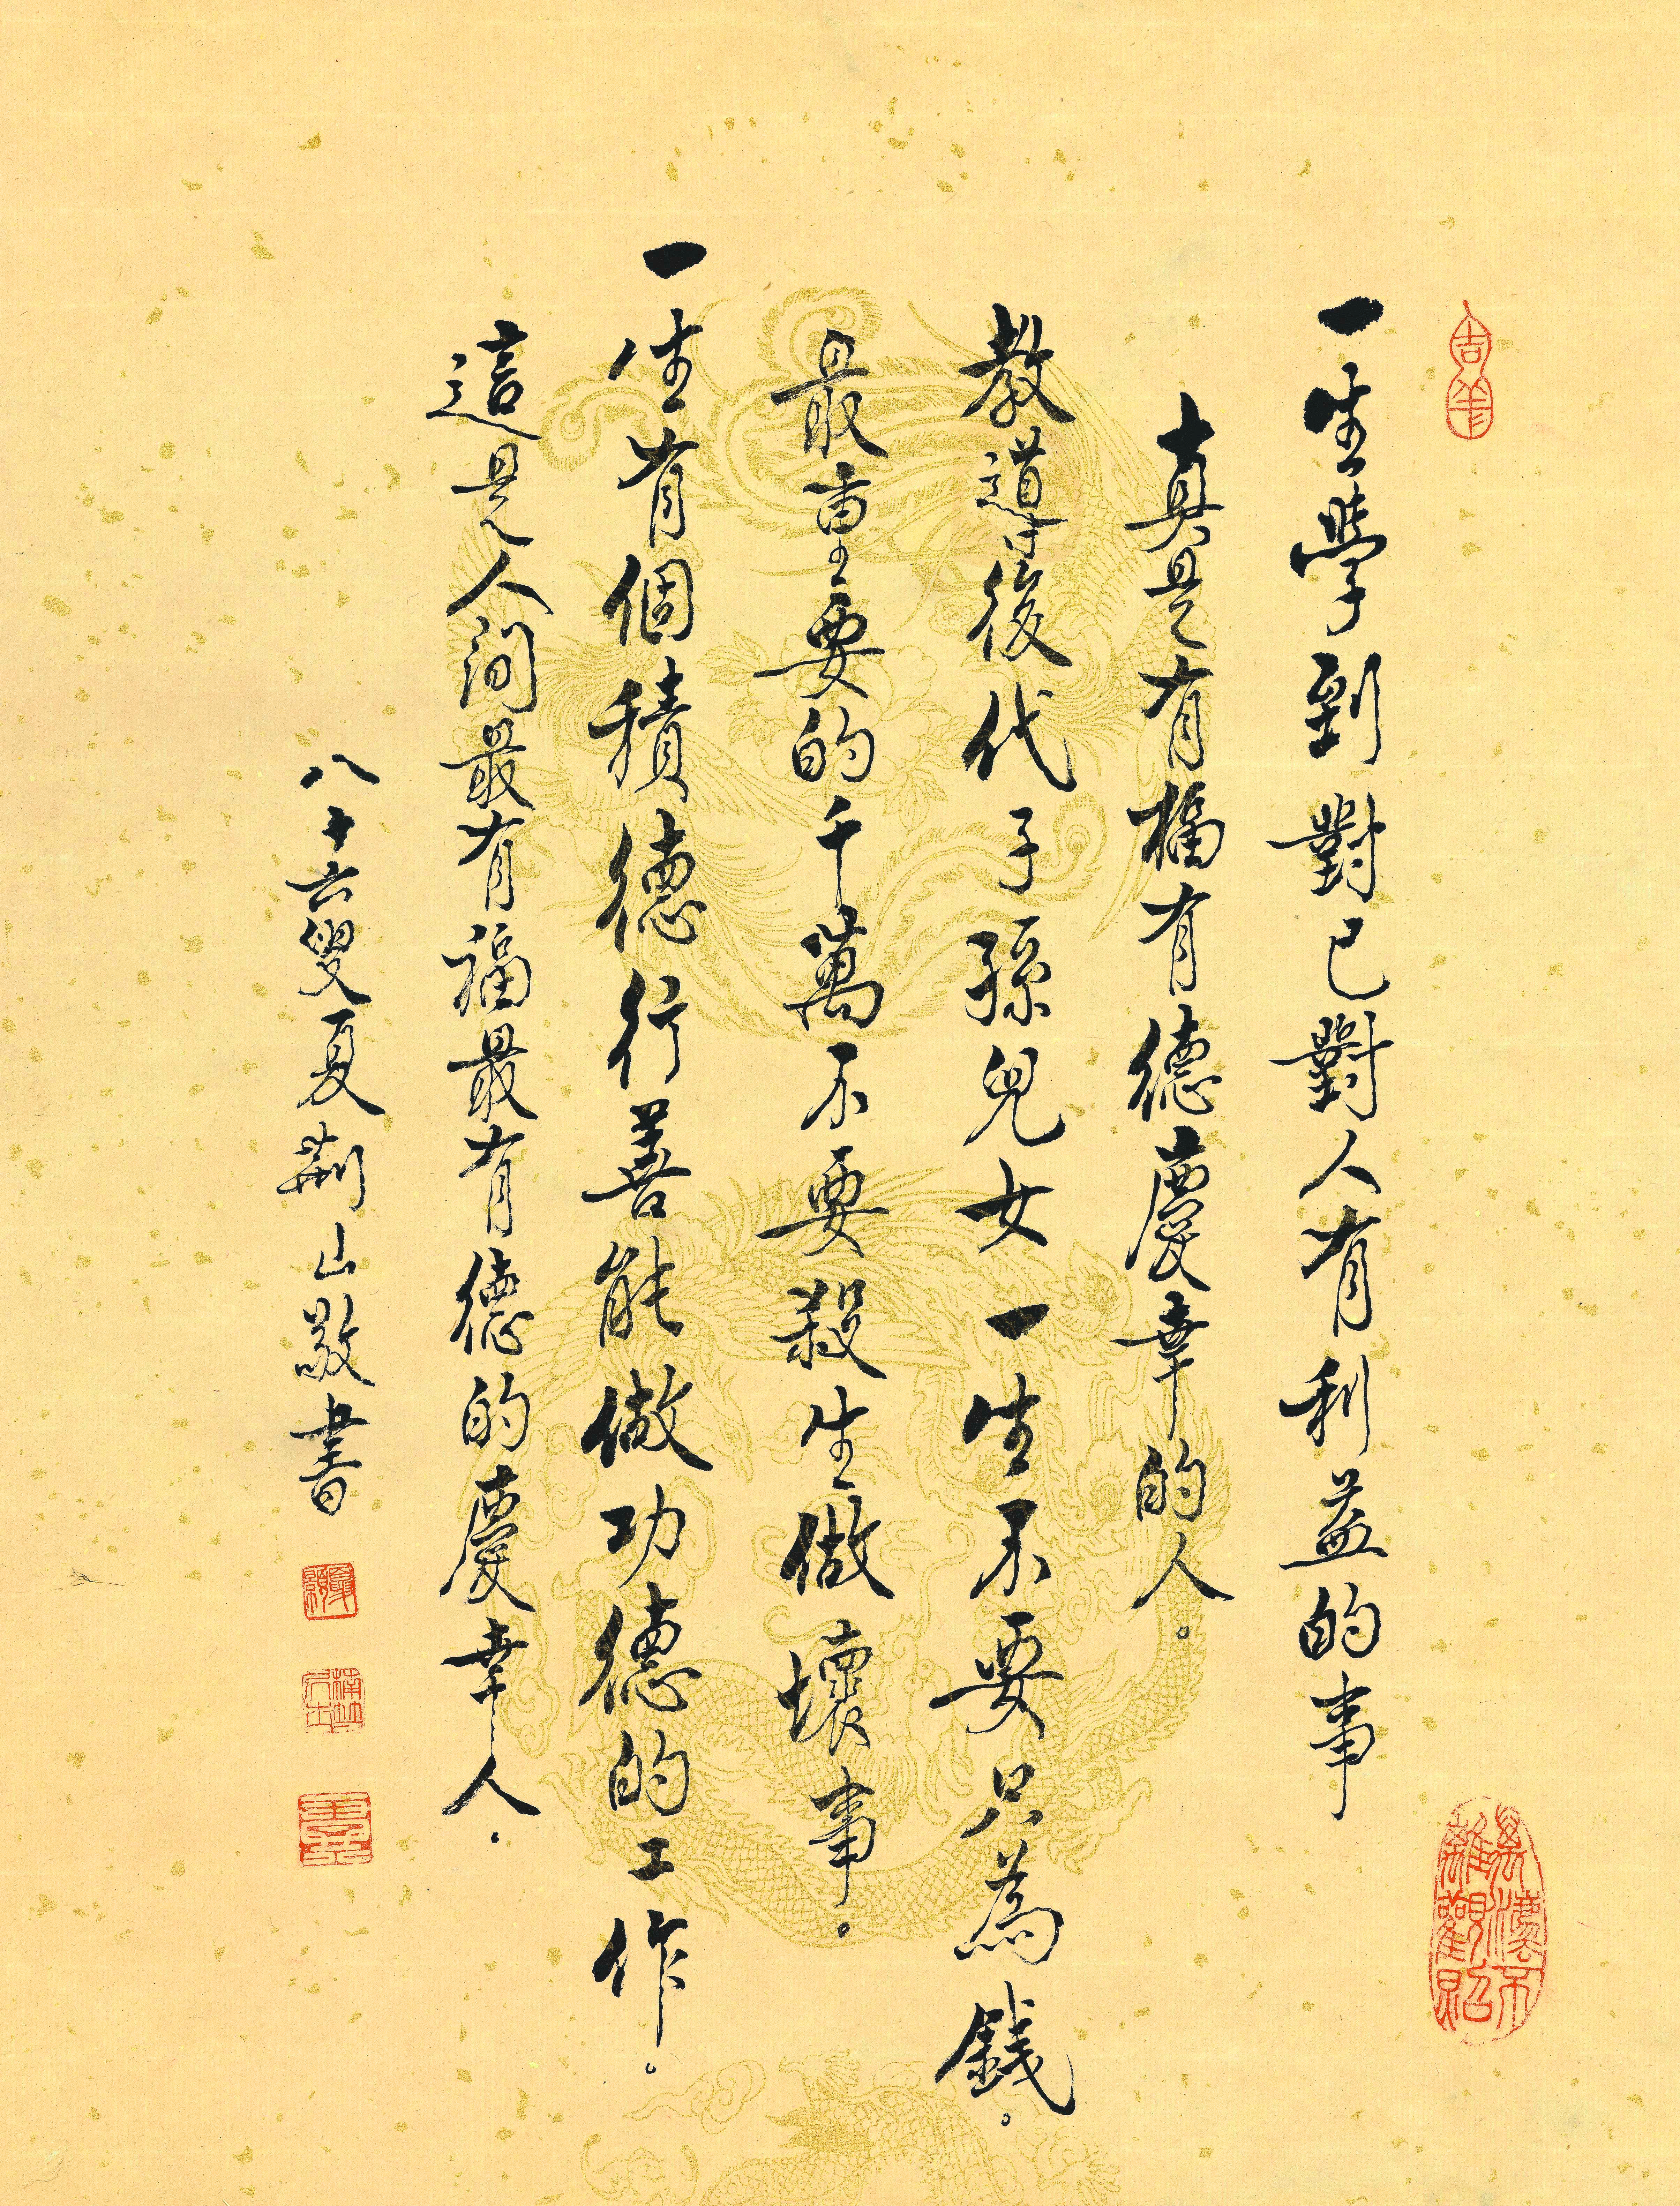 一生學到對己對人有利益的事
真是有福有德慶幸的人。
教導後代子孫兒女一生不要只為錢。
最重要的千萬不要殺生做壞事。
一生有個積德行善能做功德的工作。
這是人间最有福最有德的慶幸人.
八十六叟夏荊山敬書